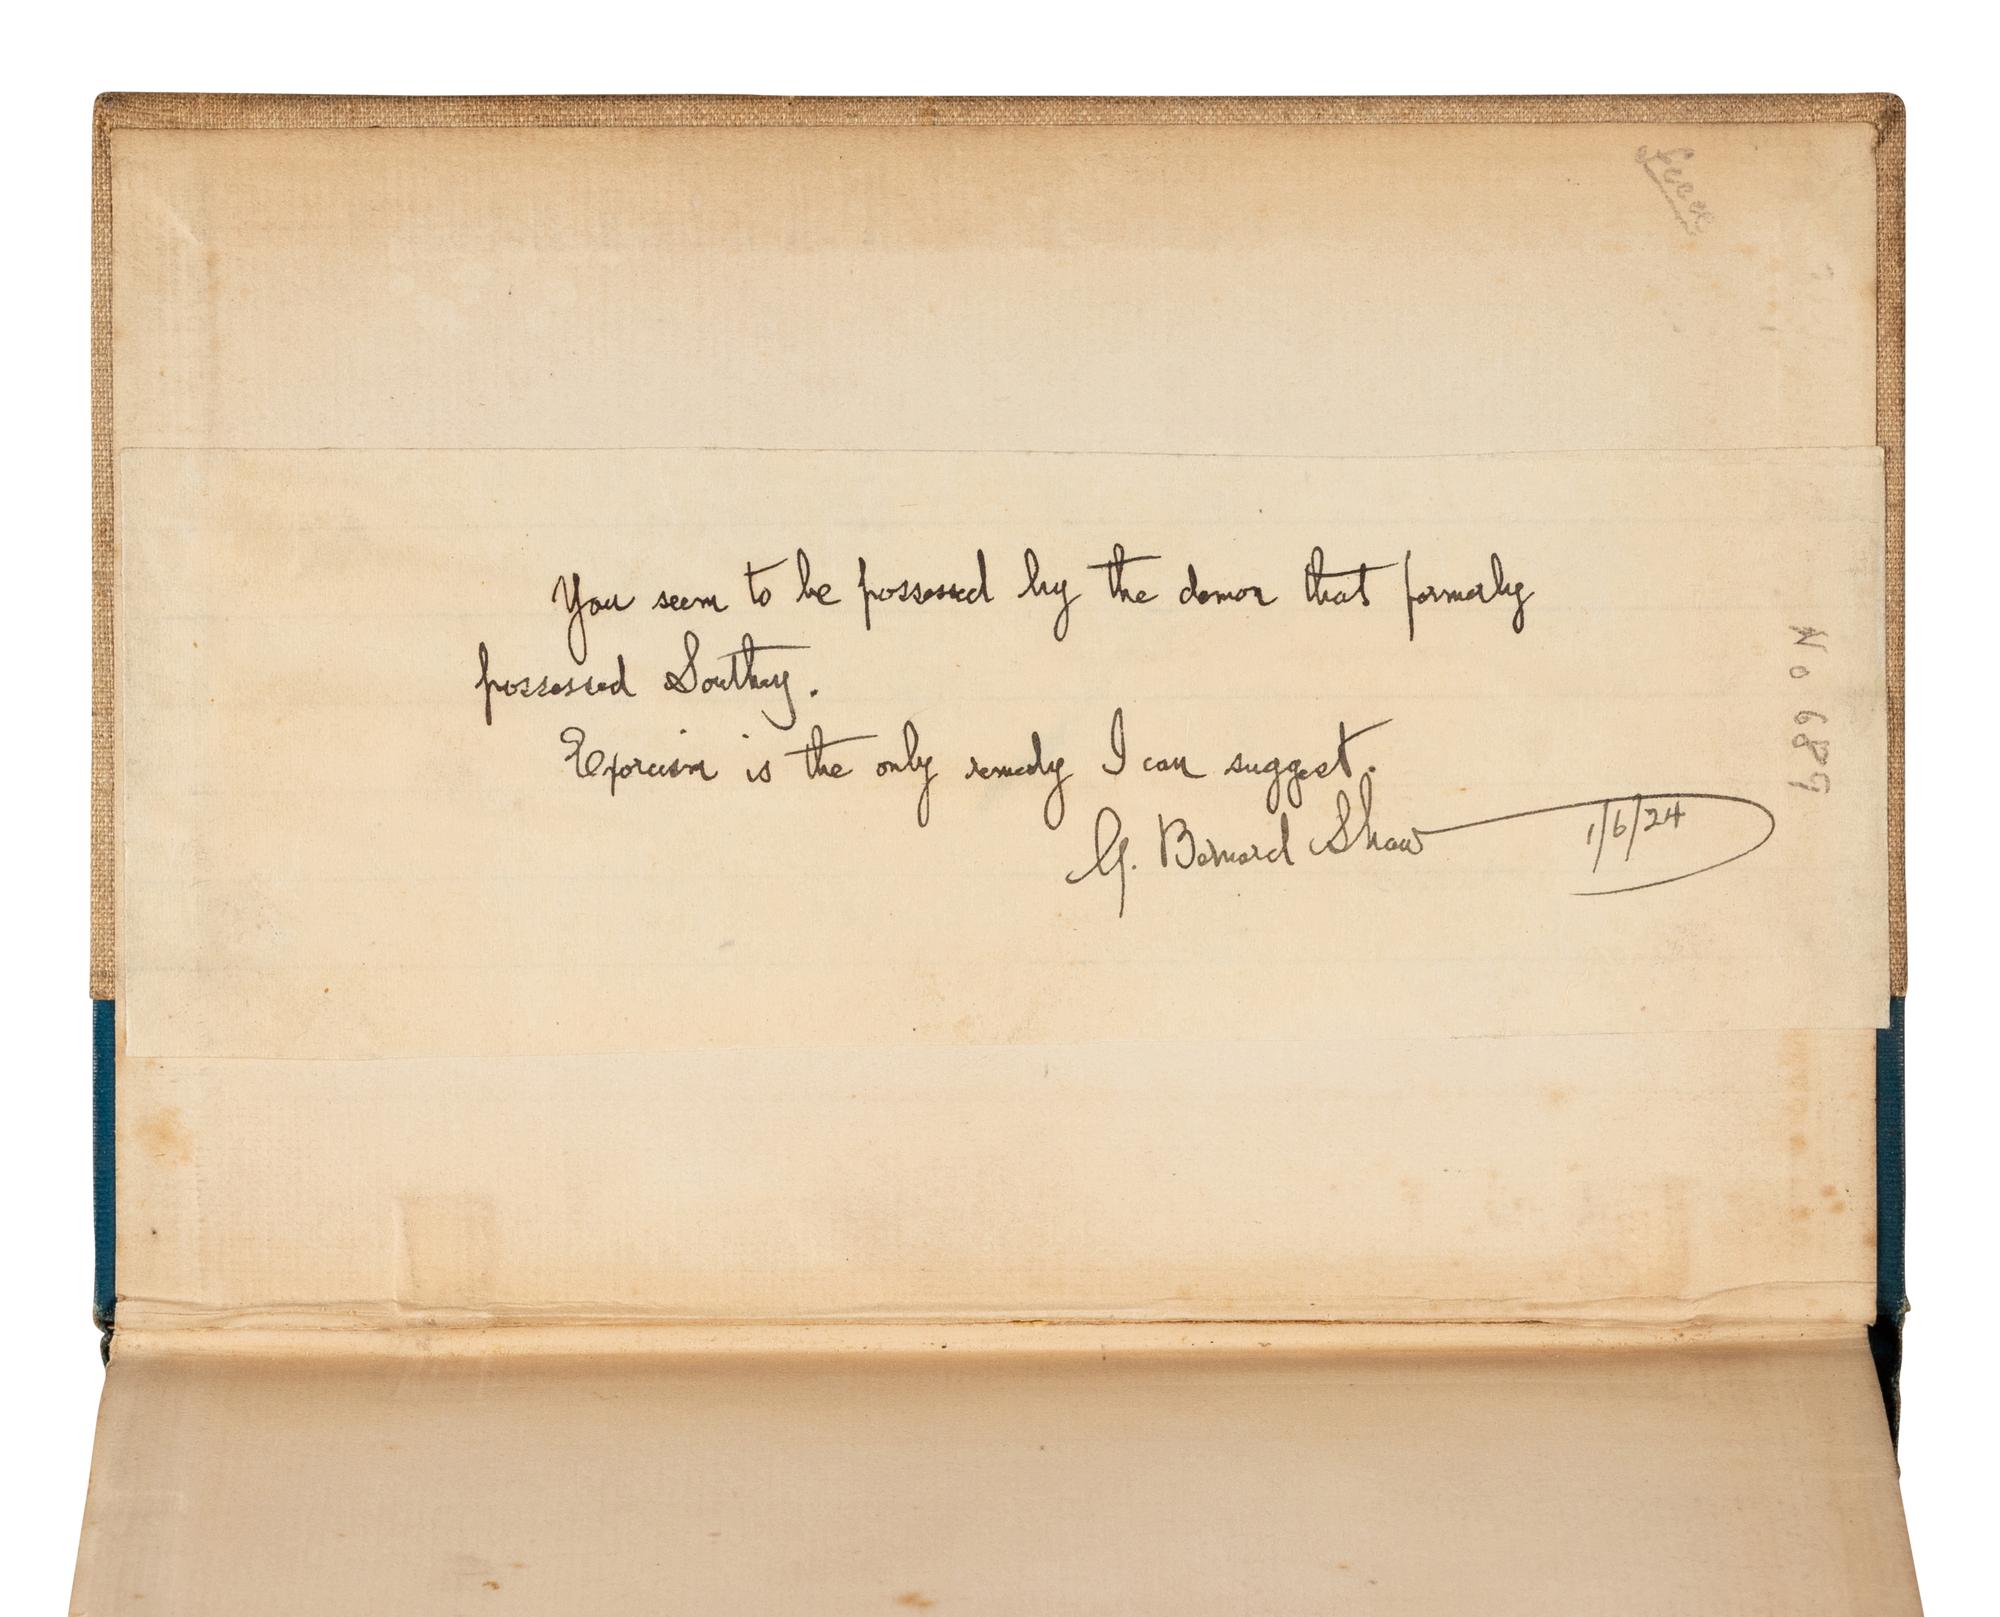 You seem to be possessed by the demon that formerly
possessed Southey.
Exorcism is the only remedy I can suggest.
G. Bernard Shaw 1/6/24
No 689